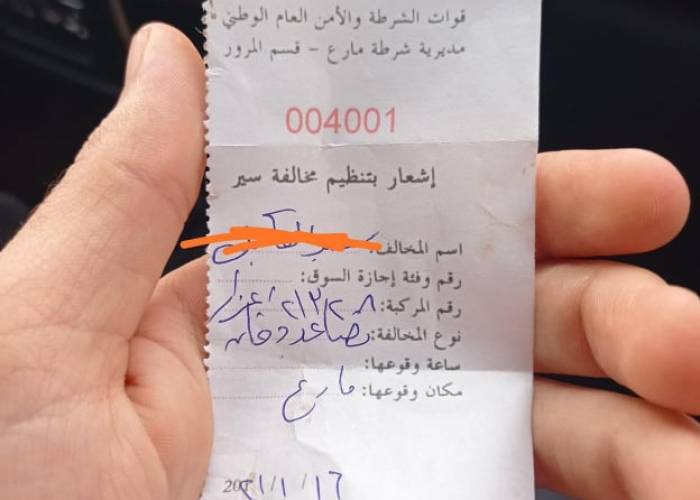 قوات الشرطة والأمن العام الوطني
مديرية شرطة مارع - قسم المرور
004001
إشعار بتنظيم مخالفة سير
اسم المخالف:
رقم وفئة إجازة السوق:
رقم المركبة:
نوع المخالفة: تصاعد دخان
ساعة وقوعها:
مكان وقوعها: مارع